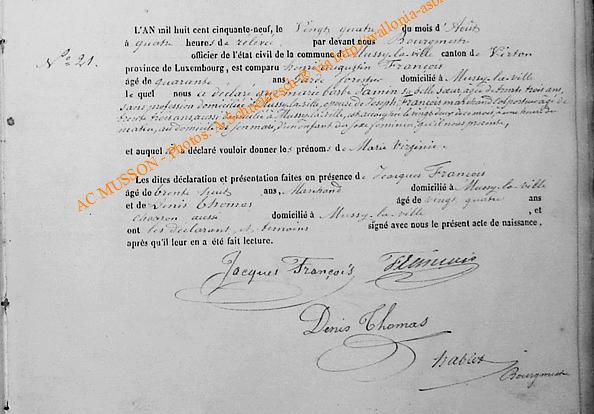 L'AN mil huit cent cinquante-neuf, le Vingt quatre du mois d'Août
à quatre heures de relevée, par devant nous Bourgmestre
officier de l'état civil de la commune de Mussy-la-ville canton de Virton
N° 21.
province de Luxembourg, est comparu henri augustin François
âgé de quarante ans Garde forestier domicilié à Mussy-la-ville
le quel nous a déclaré que marie barbe Jamin sa belle sœur, âgée de trente trois ans,
sans profession domiciliée à Mussy-la-ville, épouse de Joseph François marchand colporteur âgé de
trente trois ans, aussi domicilié à Mussy-la-ville, est accouchée le vingt deux de ce mois à une heure du
matin, au domicile de son mari, d'un enfant du sexe féminin, qu'il nous présente,
et auquel il a déclaré vouloir donner les prénoms de Marie Virginie.
Les dites déclaration et présentation faites en présence de Jacques François
âgé de trente huit ans, Marchand domicilié à Mussy-la-ville
et de Denis Thomas âgé de vingt quatre ans
charron aussi domicilié à Mussy-la-ville, et
ont les déclarant et témoins signé avec nous le présent acte de naissance,
après qu'il leur en a été fait lecture.
Jacques François François
Denis Thomas
Bourgmestre
AC MUSSON - Photos: A. Schmickrath © via http://wallonia-asb